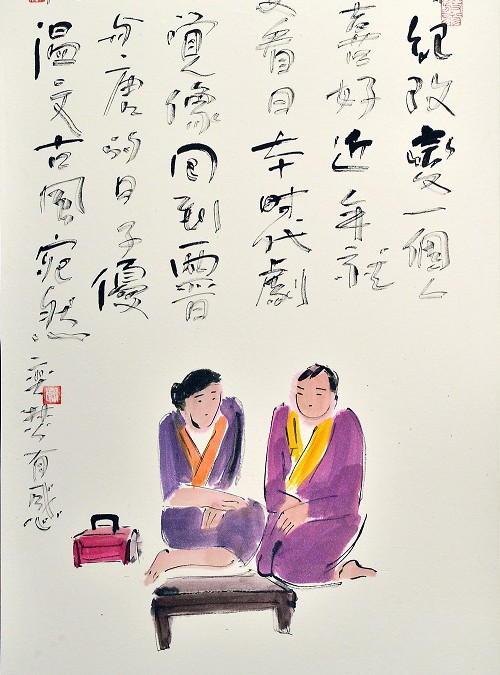 紀改變一個人
喜好近年就
看日本時代劇
覺像回到晉
與唐的日子優
溫文古風宛然
有感